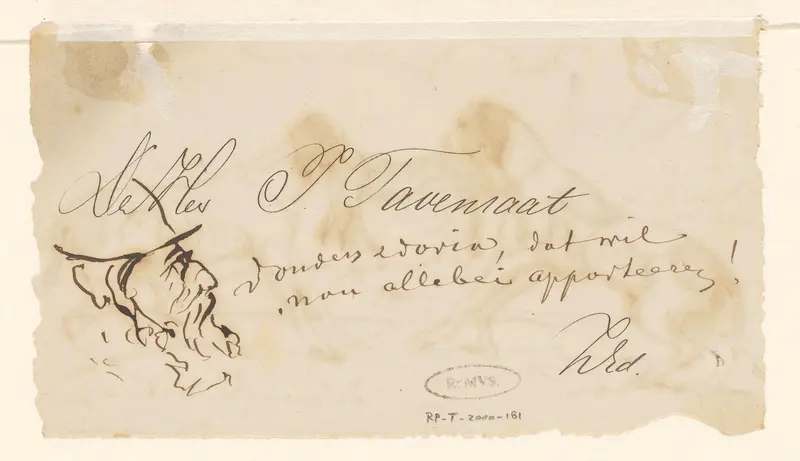 De Heer P. Tavenraat
donders & doria, dat wil
nou allebei apporteeren!
Zld.
R. MVS.
RP-T-2000-181